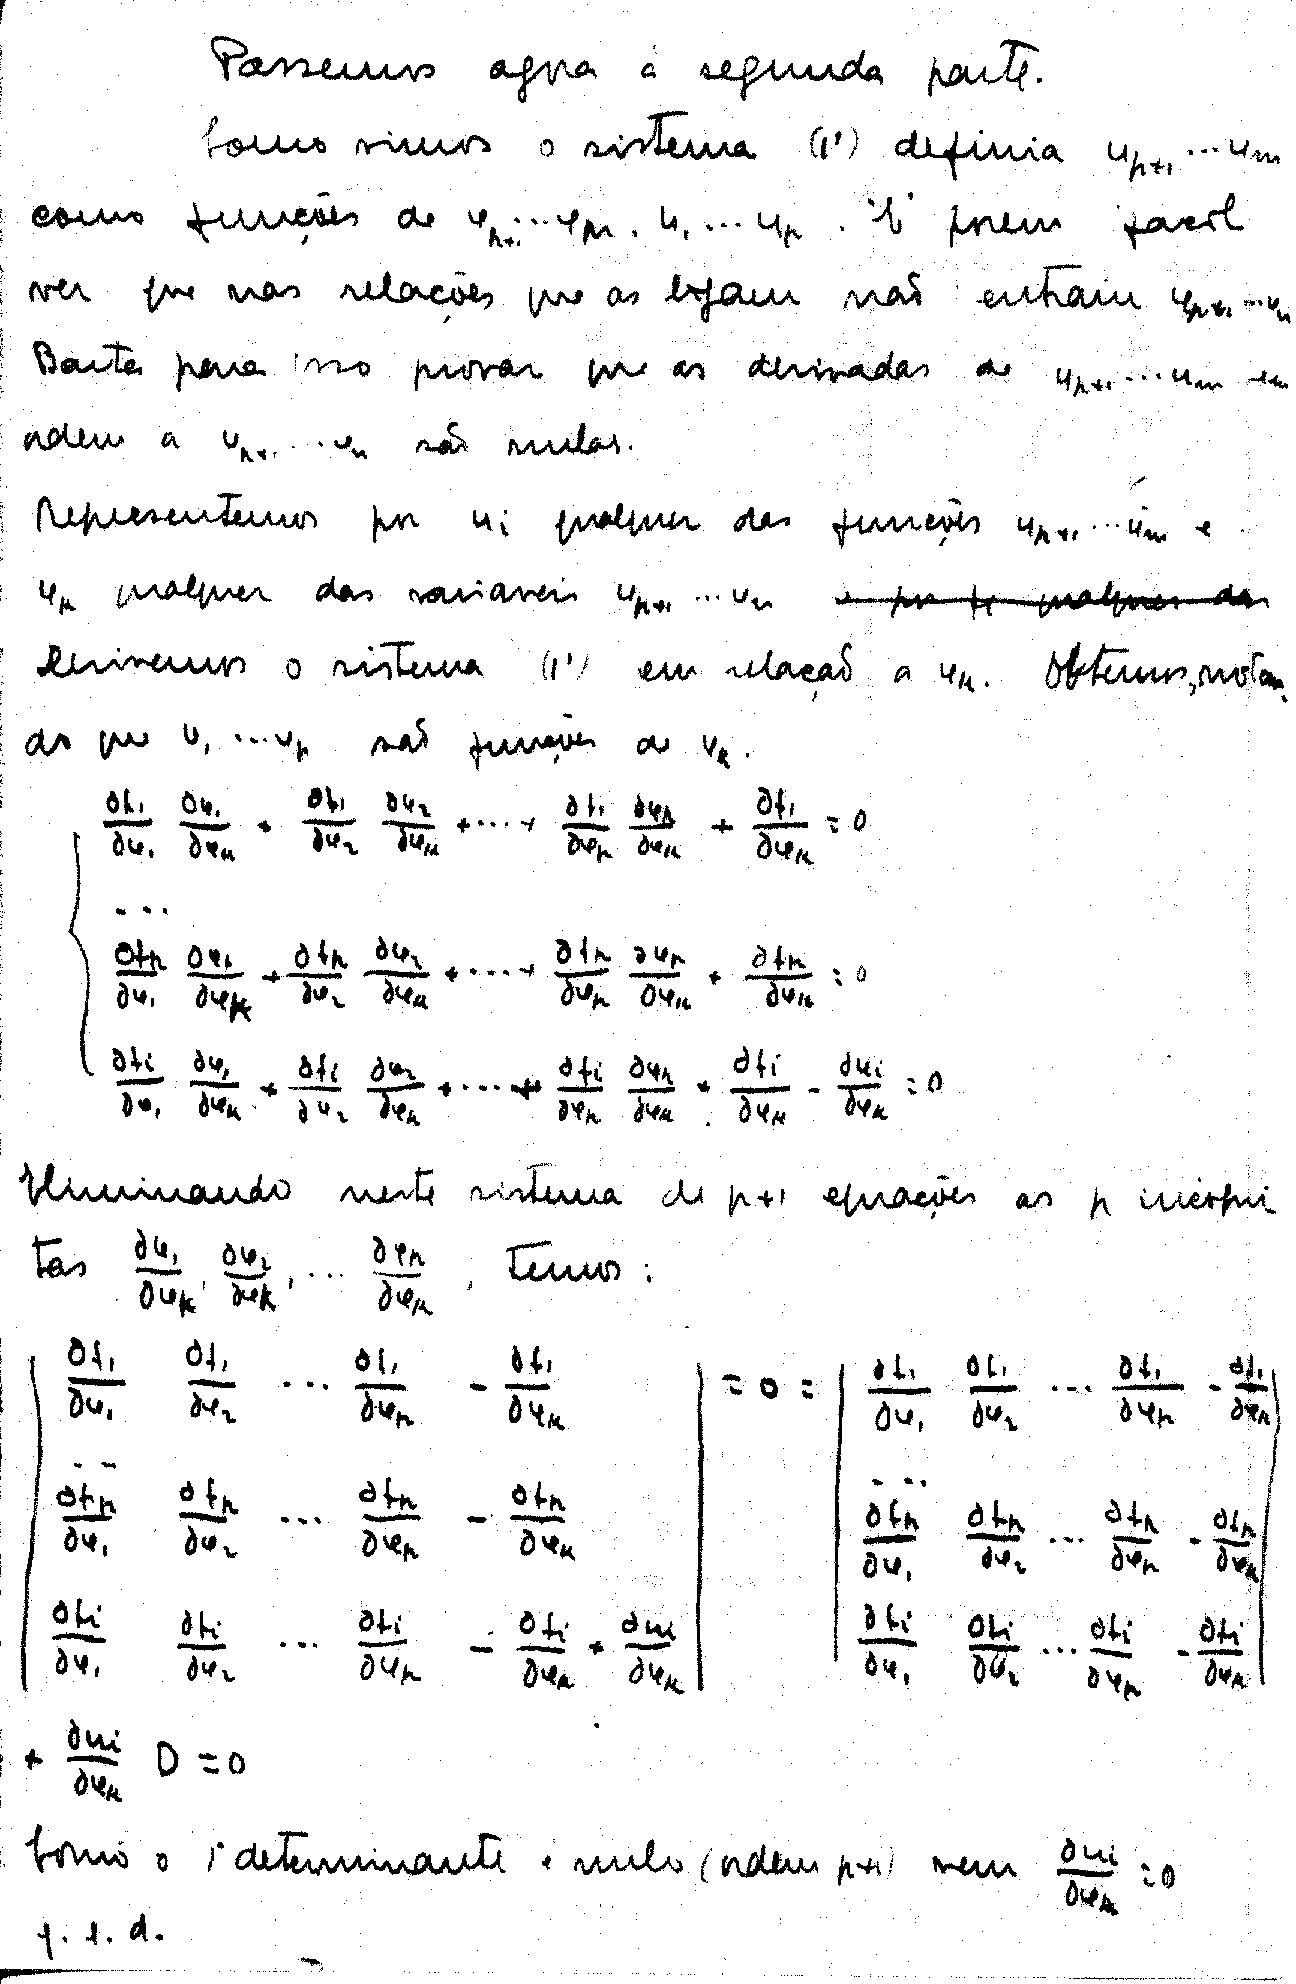 Passemos agora á segunda parte.
Como vimos o sistema (1') definia u_{p+1} ... u_m
como funções de φ_{p+1} ... φ_n, u_1 ... u_p. É porem facil
ver que nas relações que as ligam não entram φ_{p+1} ... φ_n
Basta para isso provar que as derivadas de u_{p+1} ... u_m em
ordem a φ_{p+1} ... φ_n são nulas.
Representemos por u_i qualquer das funções u_{p+1} ... u_m e
φ_k qualquer das variaveis φ_{p+1} ... φ_n e por f_i qualquer das
Derivemos o sistema (1') em relação a φ_k. Obtemos, notan-
do que φ_1 ... φ_p são funções de φ_k.
∂f_1/∂φ_1 ∂φ_1/∂φ_k + ∂f_1/∂φ_2 ∂φ_2/∂φ_k + ... + ∂f_1/∂φ_p ∂φ_p/∂φ_k + ∂f_1/∂φ_k = 0
...
∂f_p/∂φ_1 ∂φ_1/∂φ_k + ∂f_p/∂φ_2 ∂φ_2/∂φ_k + ... + ∂f_p/∂φ_p ∂φ_p/∂φ_k + ∂f_p/∂φ_k = 0
∂f_i/∂φ_1 ∂φ_1/∂φ_k + ∂f_i/∂φ_2 ∂φ_2/∂φ_k + ... + ∂f_i/∂φ_p ∂φ_p/∂φ_k + ∂f_i/∂φ_k - ∂u_i/∂φ_k = 0
Eliminando neste sistema de p+1 equações as p incogni
tas ∂φ_1/∂φ_k, ∂φ_2/∂φ_k, ... ∂φ_p/∂φ_k, temos:
| ∂f_1/∂φ_1 ∂f_1/∂φ_2 ... ∂f_1/∂φ_p - ∂f_1/∂φ_k | = 0 = | ∂f_1/∂φ_1 ∂f_1/∂φ_2 ... ∂f_1/∂φ_p - ∂f_1/∂φ_k |
... ...
∂f_p/∂φ_1 ∂f_p/∂φ_2 ... ∂f_p/∂φ_p - ∂f_p/∂φ_k ∂f_p/∂φ_1 ∂f_p/∂φ_2 ... ∂f_p/∂φ_p - ∂f_p/∂φ_k
∂f_i/∂φ_1 ∂f_i/∂φ_2 ... ∂f_i/∂φ_p - ∂f_i/∂φ_k + ∂u_i/∂φ_k ∂f_i/∂φ_1 ∂f_i/∂φ_2 ... ∂f_i/∂φ_p - ∂f_i/∂φ_k
+ ∂u_i/∂φ_k D = 0
Como o 1º determinante é nulo (ordem p+1) vem ∂u_i/∂φ_k = 0
q. e. d.